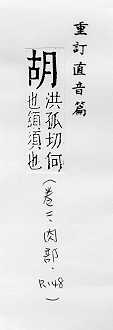 重訂直音篇
胡
洪孤切何
也須也
(卷三、肉部.
R148)